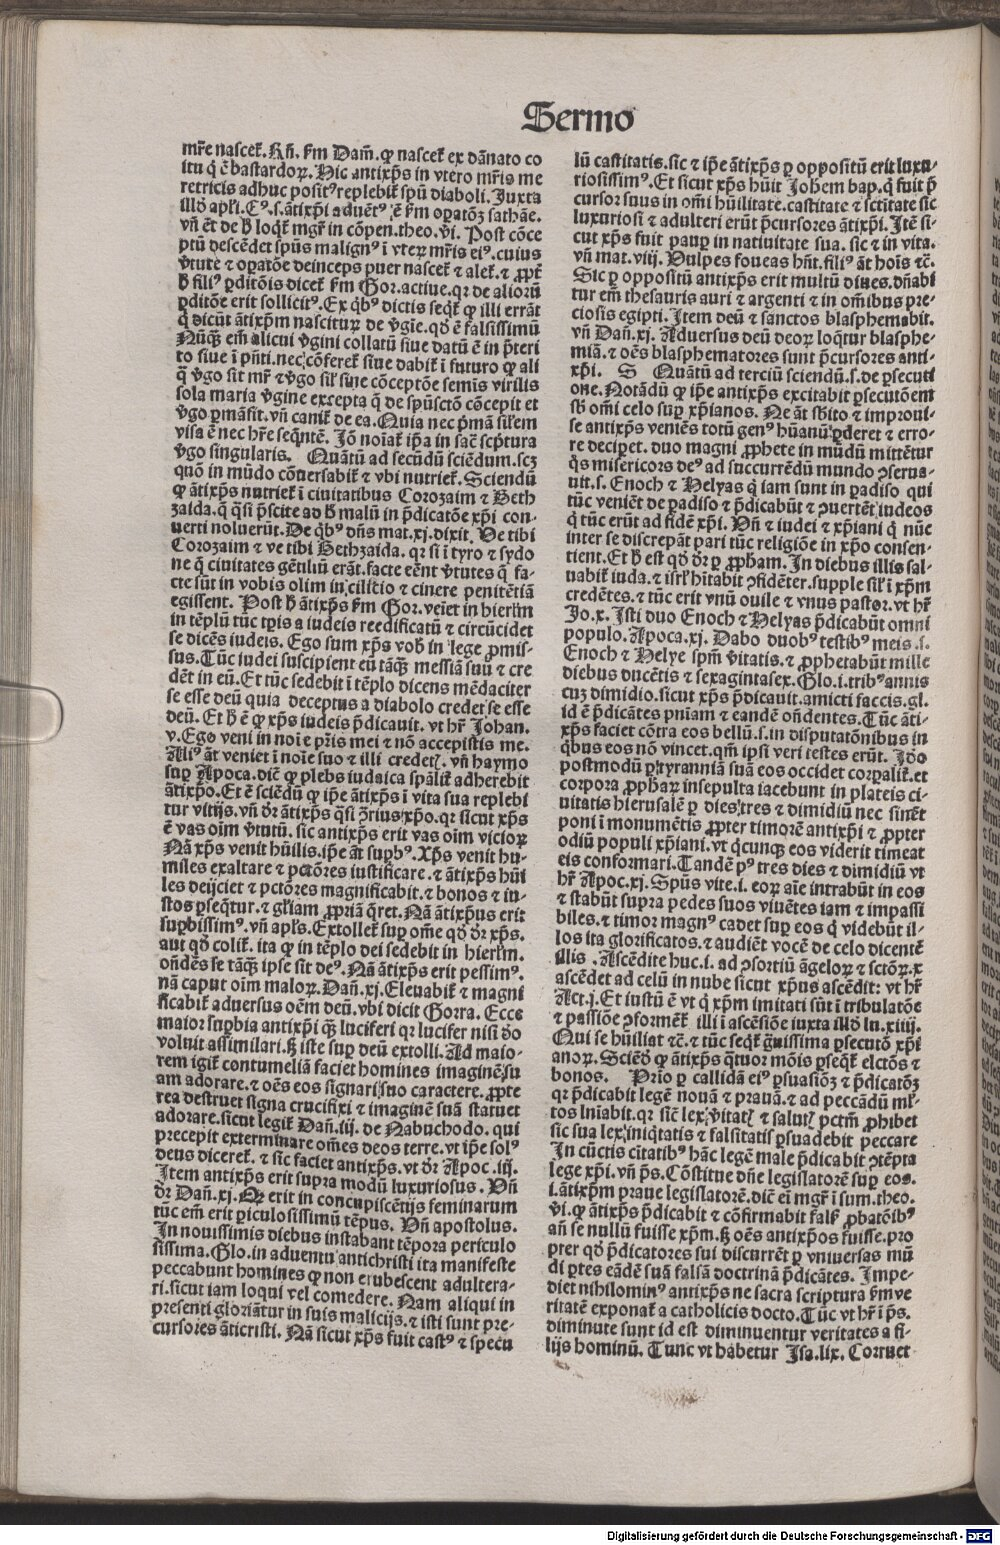 Sermo
mr̃e nascet̃. Rñ. ẜm Dam̃. ꝙ nascet̃ ex dãnato co
itu q̇ ẽ bastardoꝝ. Hic antixp̃s in vtero mr̃is me
retricis adhuc positꝰ replebit̃ spũ diaboli. Juxta
illđ apl̃i. Cꝰ.s.ãtixp̃i aduẽtꝰ ẽ ẜm oꝑatõꝫ sathãe.
vñ ẽt de ħ loqt̃ mgr̃ in cõpen.theo.v̇i. Post cõce
ptũ descẽdet spũs malignꝰ ĩ vteꝝ mr̃is eiꝰ.cuius
v̇tute ⁊ oꝑatõe deinceps puer nascet̃ ⁊ alet̃.⁊ ꝓpt̃
ħ filiꝰ ꝑditõis dicet̃ ẜm Gor.actiue.qꝛ de aliorũ
ꝑditõe erit sollicitꝰ. Ex qb̃ꝰ dictis seqt̃ ꝙ illi errãt
q̇ dicũt ãtixp̃m nasciturꝝ de v̇gĩe.qđ ẽ falsissimũ
Nũqꝫ em̃ alicui v̇gini collatũ siue datũ ẽ in p̃teri
to siue ĩ p̃nti.nec cõferet̃ siue dabit̃ ĩ futuro ꝙ ali
q̃ v̇go sit mr̃ ⁊ v̇go sil̃ sine cõceptõe semĩs virilis
sola maria v̇gine excepta q̃ de spũsctõ cõcepit et
v̇go ꝑmãsit. vñ canit̃ de ea. Quia nec p̃mã sil̃em
visa ẽ nec hr̃e seq̃ntẽ. Jõ noĩat̃ ip̃a in sac̃ sc̃ptura
v̇go singularis. Quãtũ ad secũdũ sciẽdum.scꝫ
quõ in mũdo cõuersabit̃ ⁊ vbi nutriet̃. Sciendũ
ꝙ ãtixp̃s nutriet̃ ĩ ciuitatibus Corozaim ⁊ Beth
zaida.q̃ q̃si p̃scite ad ħ malũ in p̃dicatõe xp̃i con-
uerti noluerũt. De qb̃ꝰ dñs mat.xj.dixit. Ve tibi
Corozaim ⁊ ve tibi Bethzaida. qꝛ si ĩ tyro ⁊ sydo
ne q̃ ciuitates gẽtiliũ erãt.facte eẽnt v̇tutes q̃ fa-
cte sũt in vobis olim in cilitio ⁊ cinere penitẽtiã
egissent. Post ħ ãtixp̃s ẜm Gor. veĩet in hierl̃m
in tẽplũ tũc tp̃is a iudeis reedificatũ ⁊ circũcidet
se dicẽs iudeis. Ego sum xp̃s vob̃ in lege ꝓmis-
sus. Tũc iudei suscipient eũ tãqꝫ messiã suũ ⁊ cre
dẽt in eũ. Et tũc sedebit ĩ tẽplo dicens mẽdaciter
se esse deũ quia deceptus a diabolo credet se esse
deũ. Et ħ ẽ ꝙ xp̃s iudeis p̃dicauit. vt hr̃ Johan.
v. Ego veni in noĩe pr̃is mei ⁊ nõ accepistis me.
Aliꝰ ãt veniet ĩ noĩe suo ⁊ illi credet̃. vñ haymo
suꝑ Apoca. diẽ ꝙ plebs iudaica sp̃alit̃ adherebit
ãtixp̃o. Et ẽ sciẽdũ ꝙ ip̃e ãtixp̃s ĩ vita sua replebi
tur vitijs. vñ dr̃ ãtixp̃s q̃si ꝯ̃rius xp̃o. qꝛ sicut xp̃s
ẽ vas oĩm v̇tutũ. sic antixp̃s erit vas oĩm vicioꝝ
Nã xp̃s venit hũilis. ip̃e ãt suꝑbꝰ. Xp̃s venit hu-
miles exaltare ⁊ pctõres iustificare. ⁊ ãtixp̃s hũi
les deijciet ⁊ pctõres magnificabit. ⁊ bonos ⁊ iu-
stos ꝑseq̃tur. ⁊ gl̃iam ꝓpriã q̃ret. Nã ãtixp̃us erit
suꝑbissimꝰ. vñ apl̃s. Extollet̃ suꝑ om̃e qđ dr̃ xp̃s.
aut qđ colit̃. ita ꝙ in tẽplo dei sedebit in hierl̃m.
oñdẽs se tãqꝫ ipse sit deꝰ. Nã ãtixp̃s erit pessimꝰ.
nã caput oĩm maloꝝ. Dañ.xj. Eleuabit̃ ⁊ magni
ficabit̃ aduersus oẽm deũ. vbi dicit Gorra. Ecce
maior suꝑbia antixp̃i qꝫ luciferi qꝛ lucifer nisi đo
voluit assimilari. ꝫ iste suꝑ deũ extolli. Ad maio-
rem igit̃ contumeliã faciet homines imaginẽ su
am adorare. ⁊ oẽs eos signari suo caractere. ꝓpte
rea destruet signa crucifixi ⁊ imaginẽ suã statuet
adorare. sicut legit̃ Dañ.iij. de Nabuchodo. qui
precepit exterminare om̃es deos terre. vt ip̃e solꝰ
deus diceret̃. ⁊ sic faciet antixp̃s. vt dr̃ Apoc.iij.
Item antixp̃s erit supra modũ luxuriosus. Vñ
dr̃ Dañ.xj. Qꝛ erit in concupiscẽtijs feminarum
tũc em̃ erit ꝑiculosissimũ tẽpus. Vñ apostolus.
In nouissimis diebus instabant tẽpora periculo
sissima. Glo. in aduentu antichristi ita manifeste
peccabunt homines ꝙ non erubescent adultera-
ri. sicut iam loqui vel comedere. Nam aliqui in
presenti gloriãtur in suis malicijs. ⁊ isti sunt pre-
cursores ãticristi. Nã sicut xp̃s fuit castꝰ ⁊ specu
lũ castitatis. sic ⁊ ip̃e ãtixp̃s ꝑ oppositũ erit luxu-
riosissimꝰ. Et sicut xp̃s hũit Johem bap. q̇ fuit p̃
cursor suus in om̃i hũilitate. castitate ⁊ sctĩtate sic
luxuriosi ⁊ adulteri erũt p̃cursores ãtixp̃i. Itẽ si-
cut xp̃s fuit pauꝑ in natiuitate sua. sic ⁊ in vita.
vñ mat.viij. Vulpes foueas hñt. filiꝰ ãt hoĩs ⁊c̃.
Sic ꝑ oppositũ antixp̃s erit multũ diues. dñabi
tur em̃ thesauris auri ⁊ argenti ⁊ in om̃ibus pre-
ciosis egipti. Item deũ ⁊ sanctos blasphemabit.
vñ Dañ.xj. Aduersus deũ deoꝝ loq̃tur blasphe-
miã. ⁊ oẽs blasphematores sunt p̃cursores anti-
xp̃i. S Quãtũ ad terciũ sciendũ.s.de ꝑsecuti
one. Notãdũ ꝙ ip̃e antixp̃s excitabit ꝑsecutõem
sb̃ om̃i celo suꝑ xp̃ianos. Ne ãt sb̃ito ⁊ improui-
se antixp̃s veniẽs totũ genꝰ hũanũ ꝑderet ⁊ erro-
re deciꝑet. duo magni ꝓphete in mũdũ mittẽtur
q̃s misericors deꝰ ad succurrẽdũ mundo ꝯserua-
uit.s. Enoch ⁊ Helyas q̇ iam sunt in ꝑadiso qui
tũc veniẽt de ꝑadiso ⁊ p̃dicabũt ⁊ ꝯuertẽt iudeos
q̇ tũc erũt ad fidẽ xp̃i. Vñ ⁊ iudei ⁊ xp̃iani q̇ nũc
inter se discrepãt pari tũc religiõe in xp̃o consen-
tient. Et ħ est qđ dr̃ ꝑ ꝓpham. In diebus illis sal-
uabit̃ iuda. ⁊ isrl̃ hĩtabit ꝯfidẽter. supple sil̃ ĩ xp̃m
credẽtes. ⁊ tũc erit vnũ ouile ⁊ vnus pastor. vt hr̃
Jo.x. Isti duo Enoch ⁊ Helyas p̃dicabũt omni
populo. Apoca.xj. Dabo duobꝰ testibꝰ meis .s.
Enoch ⁊ Helye spm̃ v̇itatis. ⁊ ꝓphetabũt mille
diebus ducẽtis ⁊ sexagintasex. Glo.i.tribꝰ annis
cuꝫ dimidio. sicut xp̃s p̃dicauit. amicti saccis. gl.
id ẽ p̃dicãtes pnĩam ⁊ eandẽ oñdentes. Tũc ãti-
xp̃s faciet cõtra eos bellũ.s.in disputatõnibus in
q̃bus eos nõ vincet. qm̃ ipsi veri testes erũt. Jđo
postmodũ ꝑ tyranniã suã eos occidet corꝑalit̃. et
corpora ꝓphaꝝ insepulta iacebunt in plateis ci-
uitatis hierusalẽ ꝑ dies tres ⁊ dimidiũ nec sinẽt
poni ĩ monumẽtis ꝓpter timorẽ antixp̃i ⁊ ꝓpter
odiũ populi xp̃iani. vt q̇cunqꝫ eos viderit timeat
eis conformari. Tandẽ pꝰ tres dies ⁊ dimidiũ vt
hr̃ Apoc.xj. Spũs vite.i. eoꝝ aĩe intrabũt in eos
⁊ stabũt supra pedes suos viuẽtes iam ⁊ impassi
biles. ⁊ timor magnꝰ cadet suꝑ eos q̇ videbũt il-
los ita glorificatos. ⁊ audiẽt vocẽ de celo dicentẽ
illis. Ascẽdite huc.i. ad ꝯsortiũ ãgeloꝝ ⁊ sctõꝝ. ⁊
ascẽdet ad celũ in nube sicut xp̃us ascẽdit: vt hr̃
Act.j. Et iustũ ẽ vt q̇ xp̃m imitati sũt ĩ tribulatõe
⁊ passiõe ꝯformẽt̃ illi ĩ ascẽsiõe iuxta illđ lu.xiiij.
Qui se hũiliat ⁊c̃. ⁊ tũc seqt̃ g̃uissima ꝑsecutõ xp̃i
anoꝝ. Sciẽđ ꝙ ãtixp̃s q̃tuor mõis ꝑseqt̃ elctõs ⁊
bonos. Prĩo ꝑ callidã eiꝰ ꝑsuasiõꝫ ⁊ p̃dicatõꝫ
qꝛ p̃dicabit legẽ nouã ⁊ prauã. ⁊ ad peccãdũ ml̃-
tos lñiabit. qꝛ sic̃ lex v̇itat̃ ⁊ salut̃ pctm̃ ꝓhibet
sic sua lex iniq̇tatis ⁊ falsitatis ꝑsuadebit peccare
In cũctis cĩtatibꝰ hãc legẽ male p̃dicabit ꝯtẽpta
lege xp̃i. vñ p̃s. Cõstitue dñe legislatorẽ suꝑ eos.
i.ãtixp̃m praue legislatorẽ. diẽ eĩ mgr̃ ĩ sum.theo.
v̇i. ꝙ ãtixp̃s p̃dicabit ⁊ cõfirmabit fals̃ ꝓbatõibꝰ
añ se nullũ fuisse xp̃m. ꝫ oẽs antixp̃os fuisse. pro
pter qđ p̃dicatores sui discurrẽt ꝑ vniuersas mũ
di ꝑtes eãdẽ suã falsã doctrinã p̃dicãtes. Impe-
diet nihilominꝰ antixp̃s ne sacra scriptura ẜm ve
ritatẽ exponat̃ a catholicis docto. Tũc vt hr̃ ĩ p̃s.
diminute sunt id est diminuentur veritates a fi-
lijs hominũ. Tunc vt habetur Isa.lix. Corruet
Digitalisierung gefördert durch die Deutsche Forschungsgemeinschaft - DFG